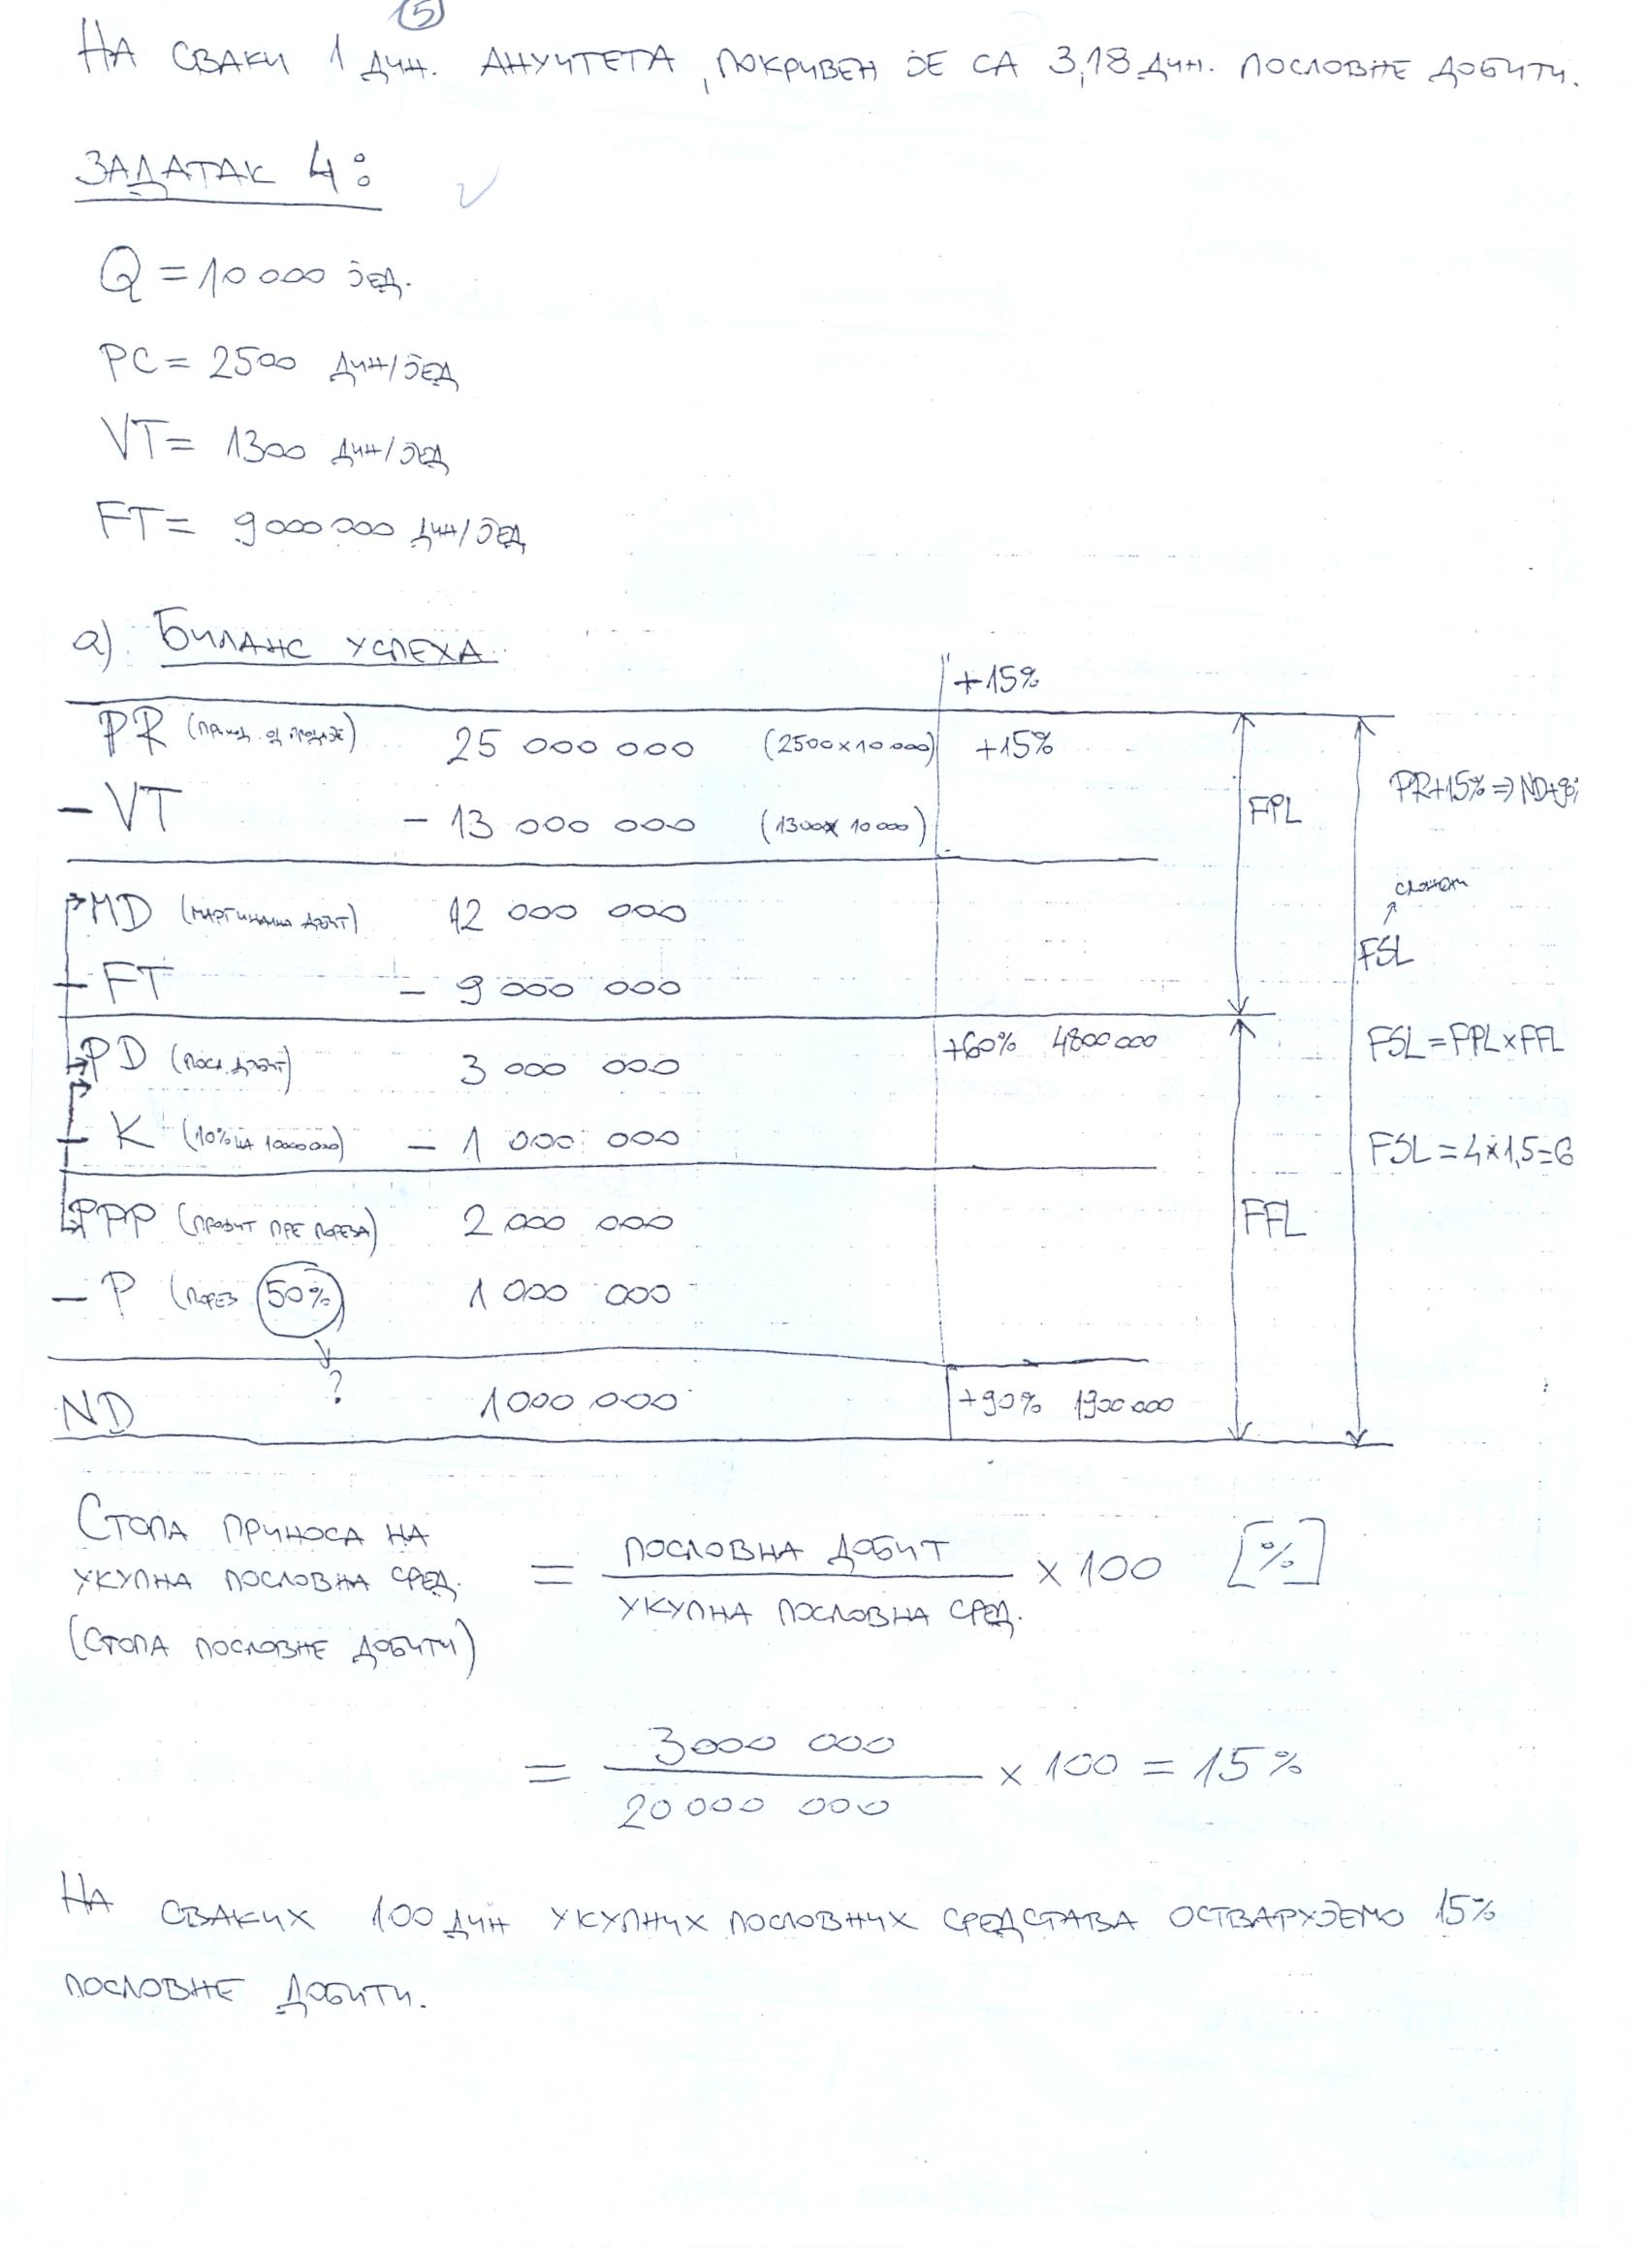 5
НА СВАКИ 1 ДИН. АНУИТЕТА, ПОКРИВЕН ЈЕ СА 3,18 ДИН. ПОСЛОВНЕ ДОБИТИ.
ЗАДАТАК 4:
Q = 10 000 ЈЕД.
PC = 2500 ДИН/ЈЕД
VT = 1300 ДИН/ЈЕД
FT = 9 000 000 ДИН/ЈЕД
а) БИЛАНС УСПЕХА
+15%
PR (ПРИХОД ОД ПРОДАЈЕ) 25 000 000 (2500x10 000) +15%
PR+15% => ND+90
- VT - 13 000 000 (1300x 10 000)
FPL
MD (МАРГИНАЛНА ДОБИТ) 12 000 000
- FT - 9 000 000
FSL
PD (ПОСЛ. ДОБИТ) 3 000 000 +60% 4800 000
FSL = FPL x FFL
- K (10% НА 10000000) - 1 000 000
FSL = 4 x 1,5 = 6
PPP (ПРОФИТ ПРЕ ПОРЕЗА) 2 000 000
FFL
- P (ПОРЕЗ 50%) 1 000 000
?
ND 1000 000 +90% 1900 000
СТОПА ПРИНОСА НА
УКУПНА ПОСЛОВНА СРЕД.
(СТОПА ПОСЛОВНЕ ДОБИТИ)
= ПОСЛОВНА ДОБИТ / УКУПНА ПОСЛОВНА СРЕД. x 100 [%]
= 3000 000 / 20 000 000 x 100 = 15%
НА СВАКИХ 100 ДИН УКУПНИХ ПОСЛОВНИХ СРЕДСТАВА ОСТВАРУЈЕМО 15%
ПОСЛОВНЕ ДОБИТИ.